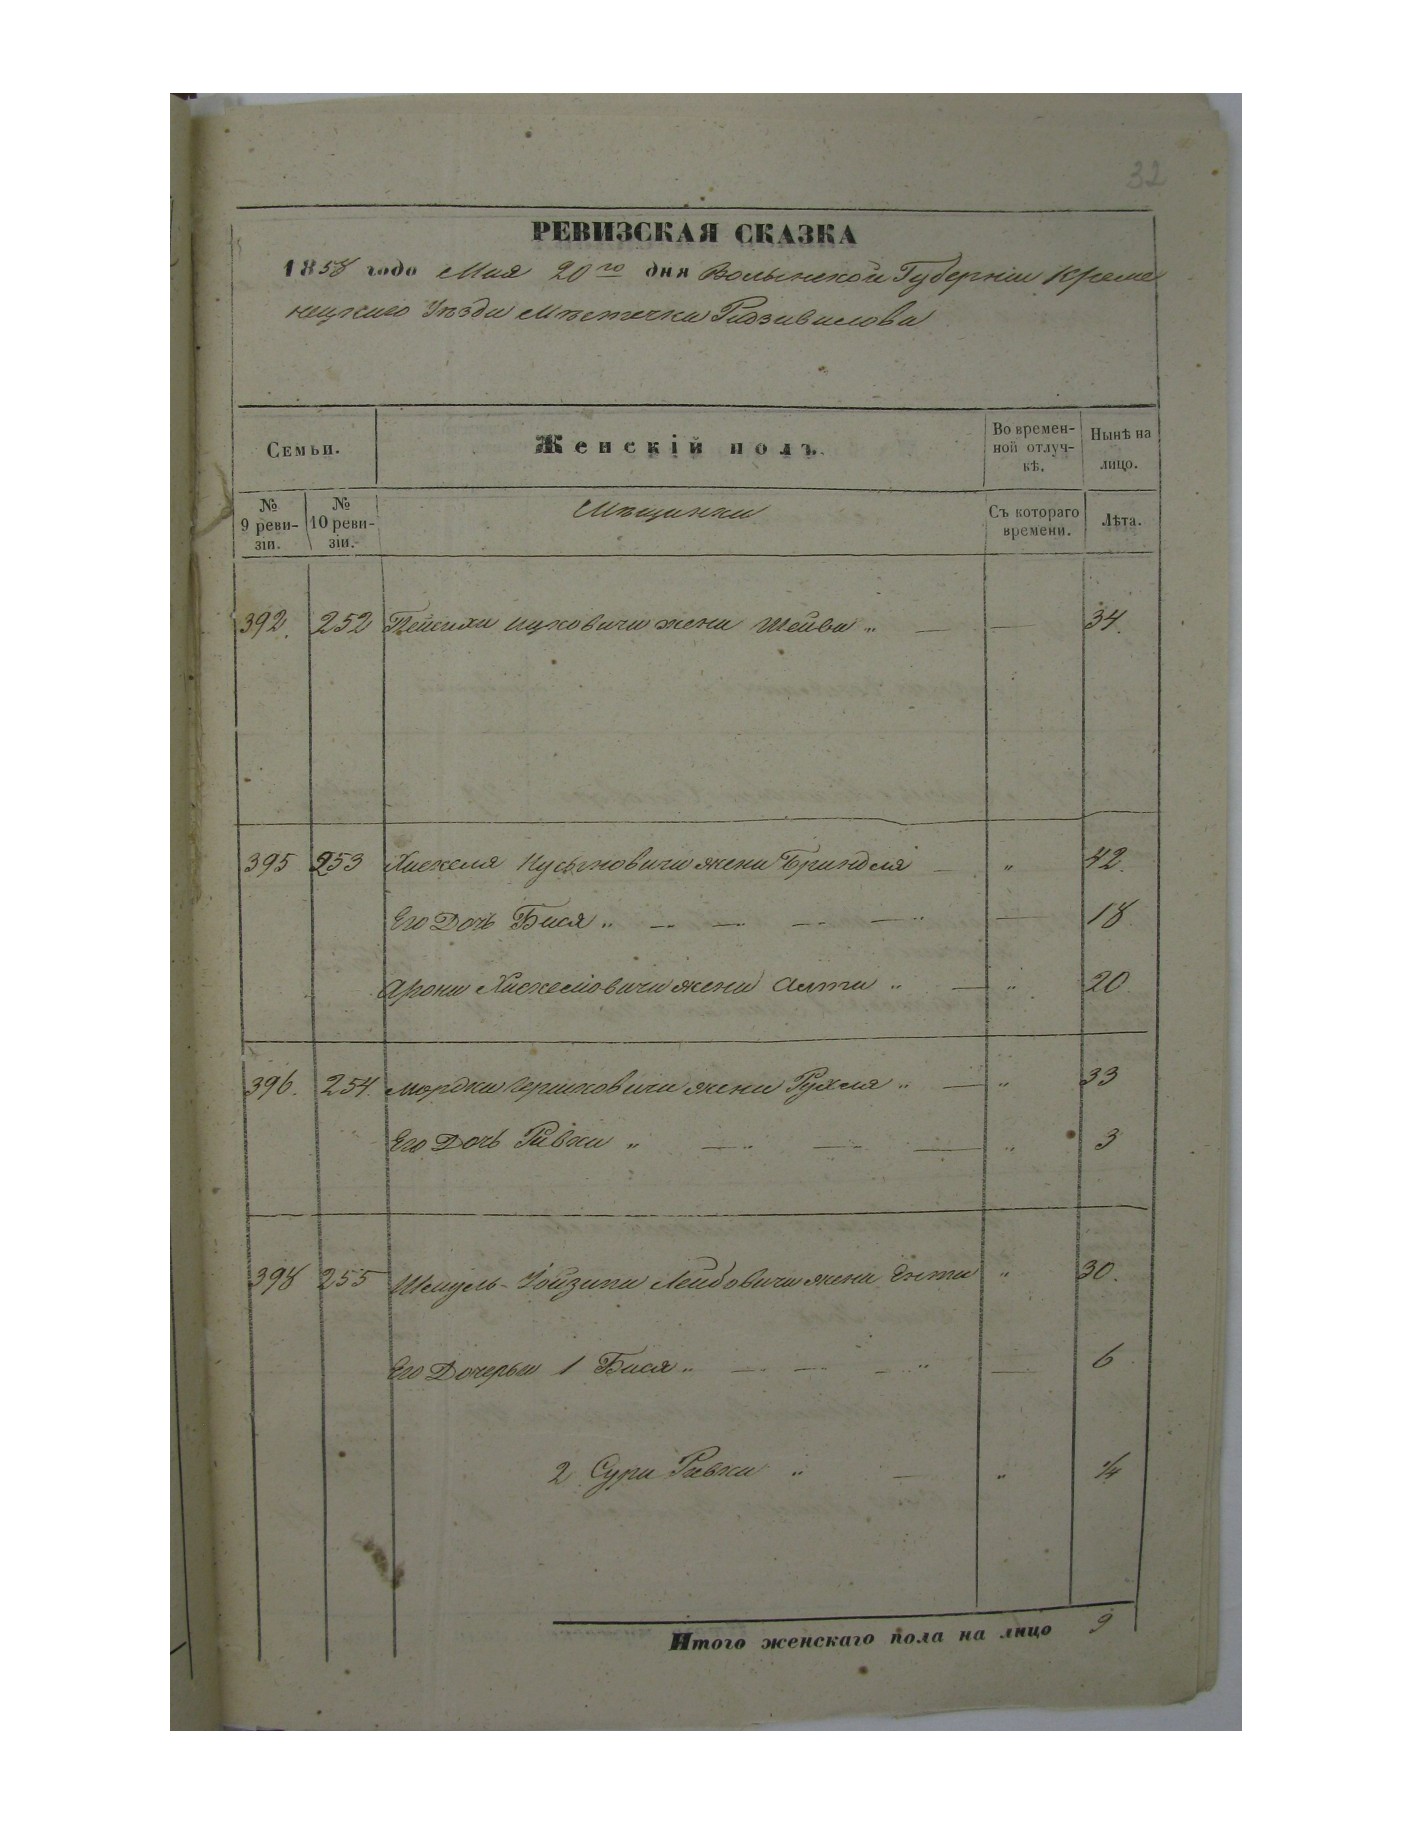 32
РЕВИЗСКАЯ СКАЗКА
1858 года Мая 20го дня Волынской Губерніи Креме
нецкаго Уѣзда Мѣстечка Радзивилова
Семьи.
Женскій полъ.
Во времен-
ной отлуч-
кѣ.
Нынѣ на
лицо.
№
9 реви-
зіи.
№
10 реви-
зіи.
Мѣщанки
Съ котораго
времени.
Лѣта.
392. 252 Пейсаха Ицковича жена Шейва „ — — 34.
395 253 Хаскеля жена Бриндля — „ 42.
Его Дочь Бася „ — — — — „ — 18
Арона Хаскелювича жена Алта „ — „ 20
396. 254. Мордка Гершковича жена Рухля „ — „ 33
Его Дочь Ривка „ — — — „ 3
398 255 Шмуль-Іойзипа Лейбовича жена Ента „ 30.
Его Дочерьи 1 Бася „ — — — „ — 6
2 Сура Ривка „ — „ 1/4
Итого женскаго пола на лицо 9